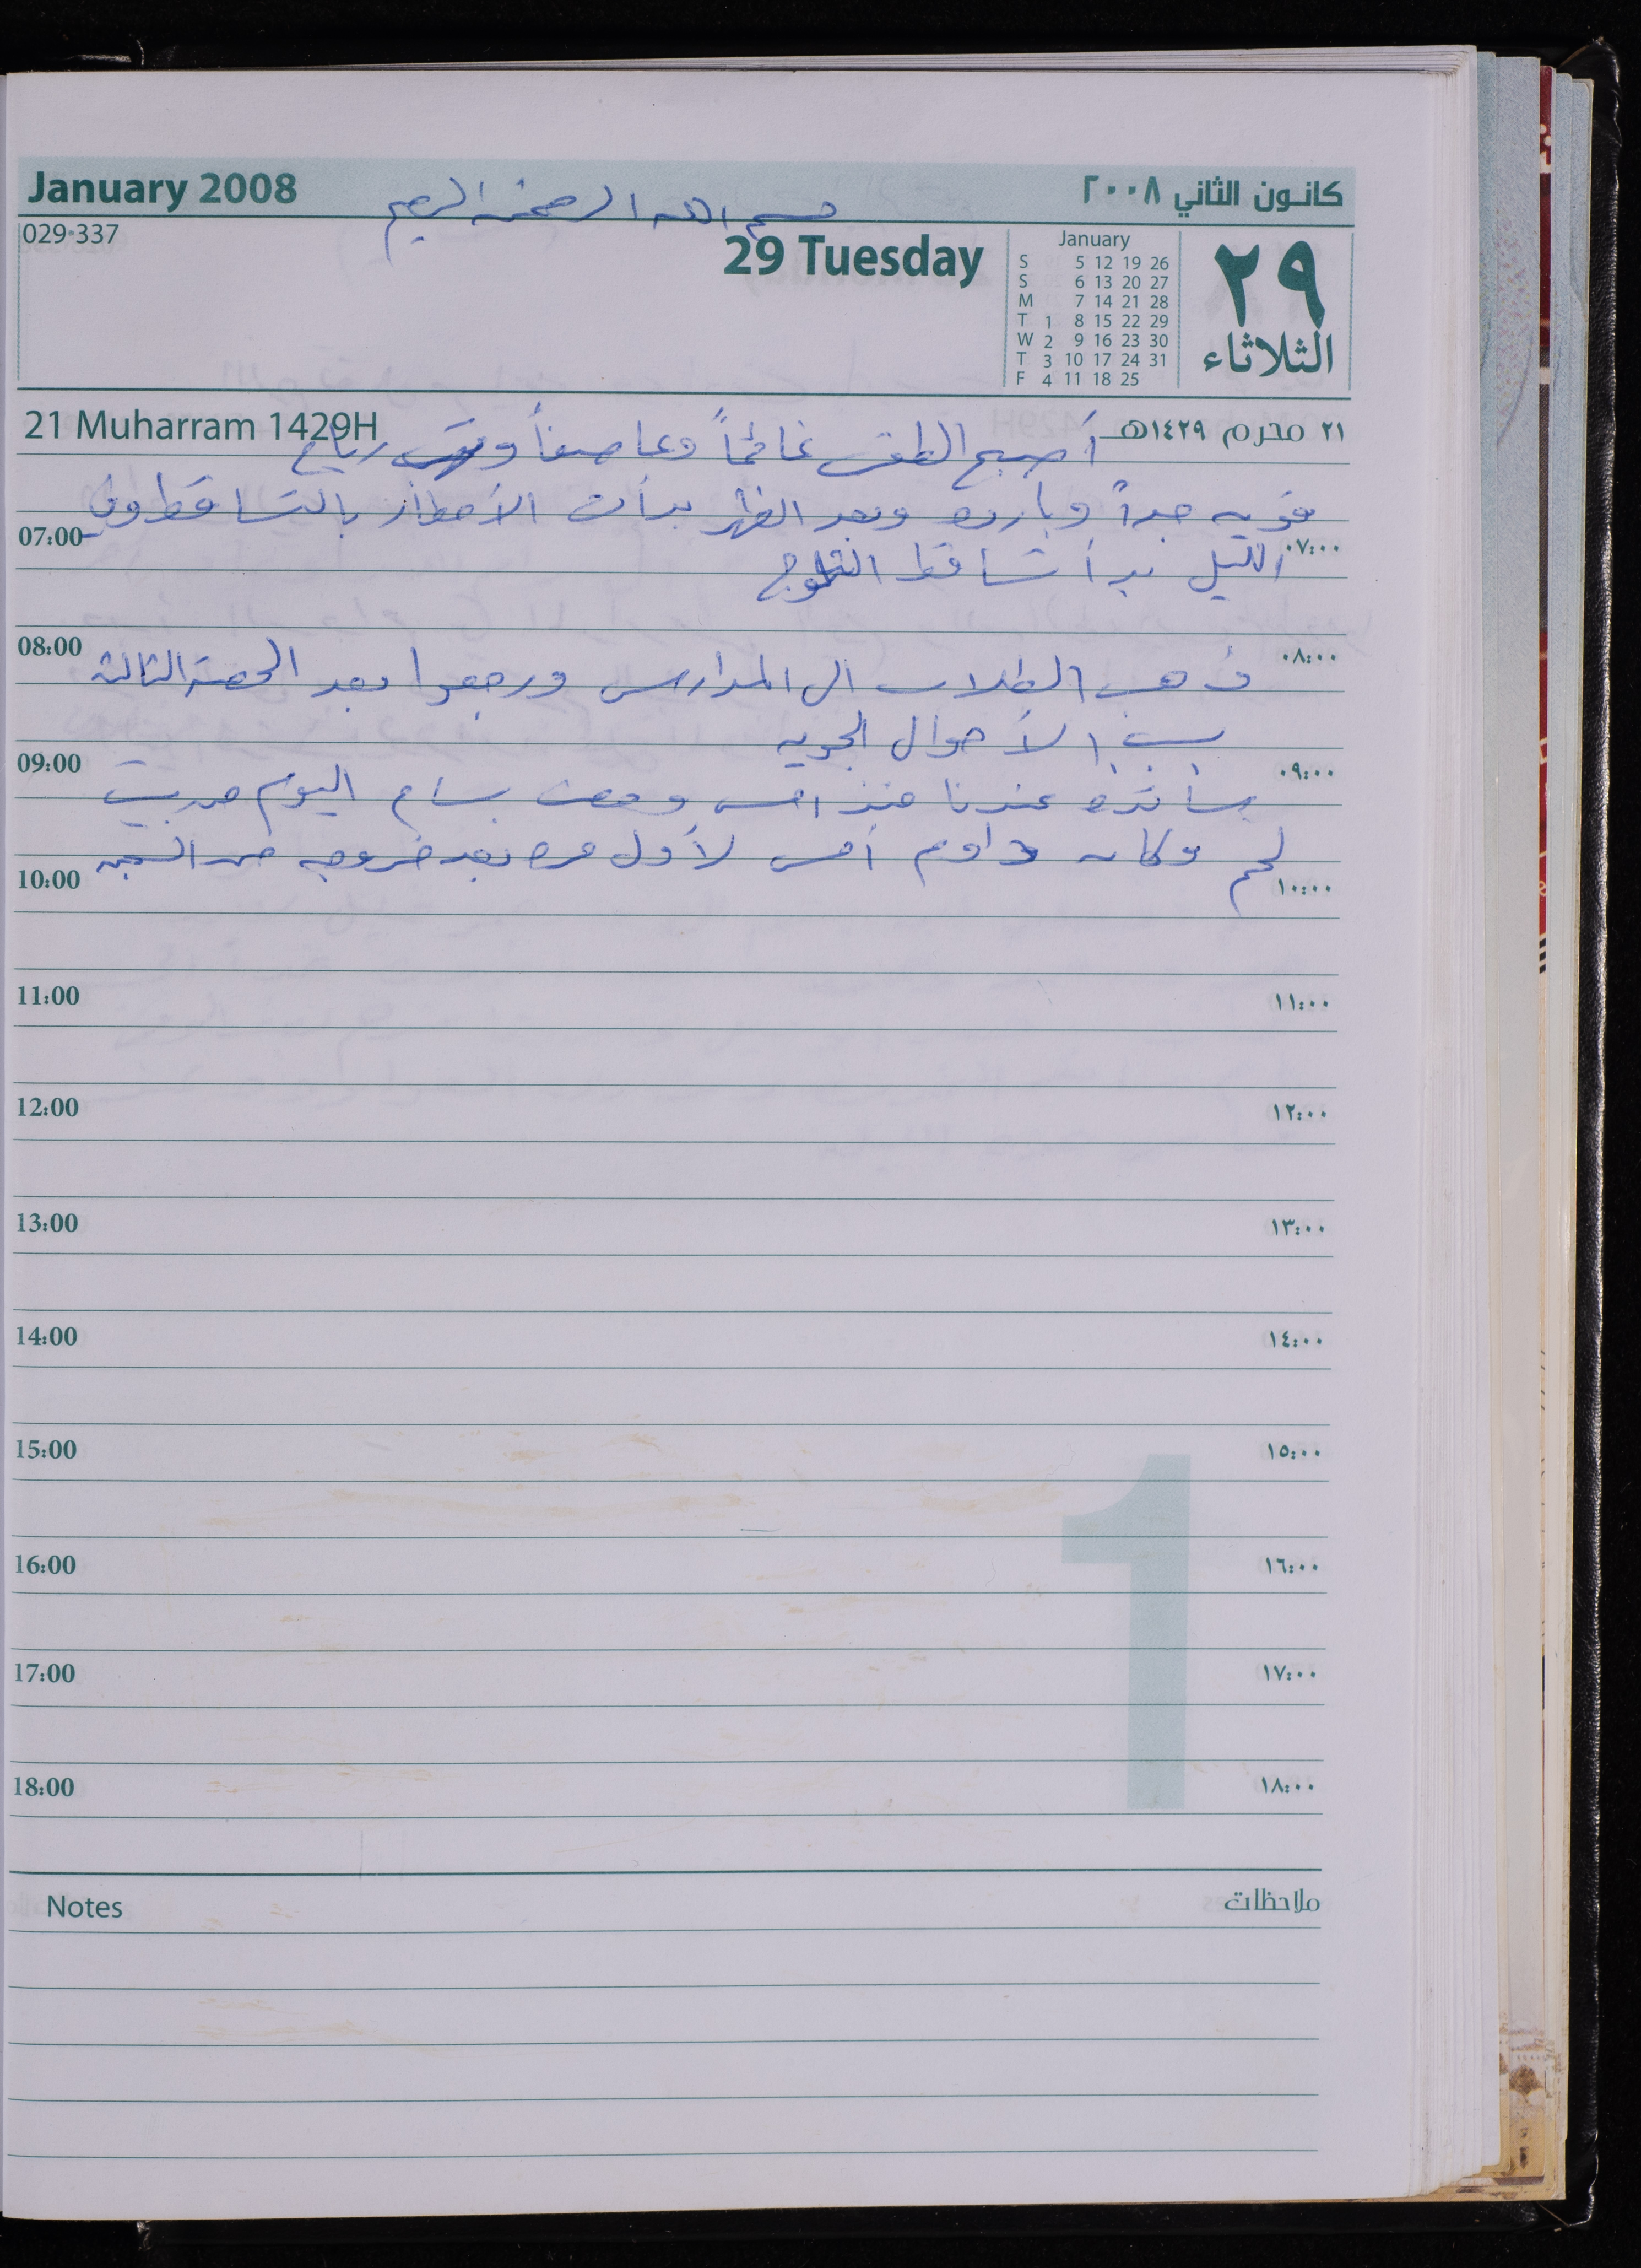 January 2008
كانون الثاني ٢٠٠٨
بسم الله الرحمن الرحيم
029-337
29 Tuesday
January
S 5 12 19 26
S 6 13 20 27
M 7 14 21 28
T 1 8 15 22 29
W 2 9 16 23 30
T 3 10 17 24 31
F 4 11 18 25
٢٩
الثلاثاء
21 Muharram 1429H
٢١ محرم ١٤٢٩هـ
أصبح الطقس غائماً وعاصفاً رياح
قويه جداً وبارده وبعد الظهر بدأت الأمطار بالتساقط وفي
07:00 ٠٧:٠٠
الليل بدأ تساقط الثلوج
08:00 ٠٨:٠٠
ذهب الطلاب الى المدارس ورجعوا بعد الحصة الثالثة
بسبب الأحوال الجويه
09:00 ٠٩:٠٠
عندنا منذ امس بسام اليوم من بيت
لحم وكان داوم أمس لأول مره بعد خروجه من السجن
10:00 ١٠:٠٠
11:00 ١١:٠٠
12:00 ١٢:٠٠
13:00 ١٣:٠٠
14:00 ١٤:٠٠
15:00 ١٥:٠٠
16:00 ١٦:٠٠
17:00 ١٧:٠٠
18:00 ١٨:٠٠
1
Notes
ملاحظات